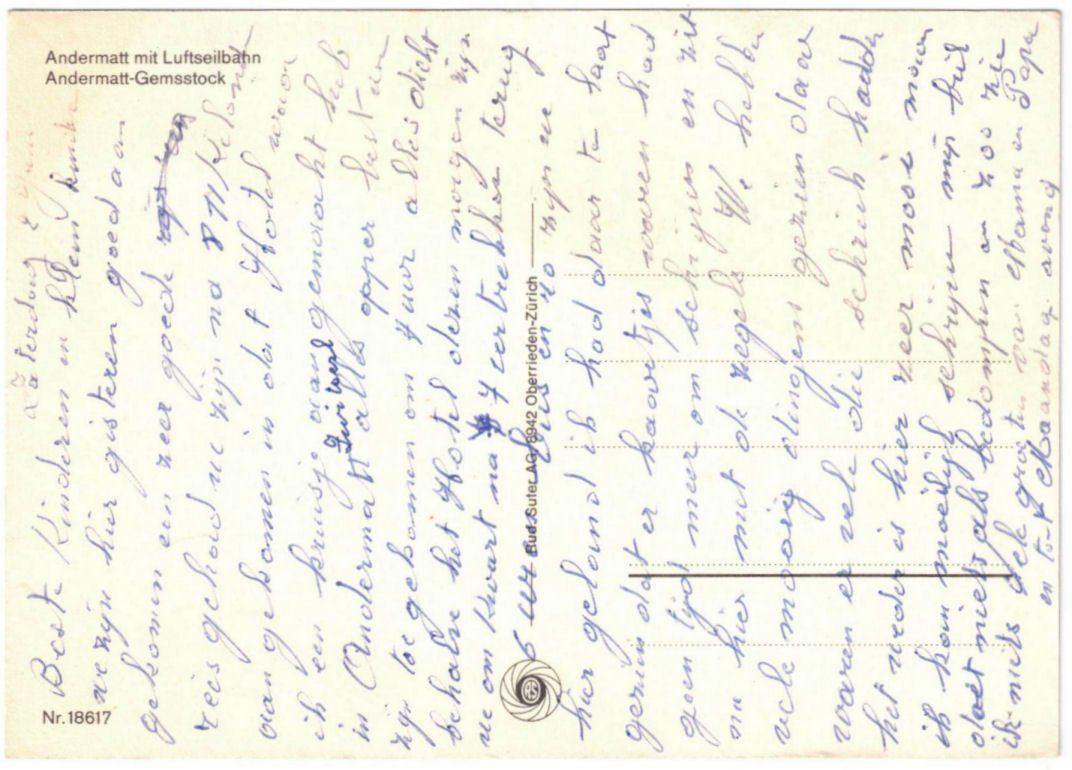 Andermatt mit Luftseilbahn
Andermatt-Gemsstock
Nr. 18617
Bud. Suter AG, 8942 Oberrieden-Zürich
Zaterdag 2 Juni
Beste Kinderen en klein kinder
we zijn hier gisteren goed aan
gekomen een zeer goede
reis gehad we zijn na 811 Kilom
aangekomen in dat Hotel waar
ik een kruisje aan gemaakt heb
in Andermatt Zwitserl alles oper best we
zijn toe gekomen om 4 uur alles dicht
behalve het Hotel deren morgen zijn
we om kwart na 7 vertrekken terug
6 uur bus en zo zijn we
hier geland ik had daar te laat
gezien dat er kaartjes waren had
geen tijd meer om schrijven en zit
nu hier met de zegels We hebben
vele mooig dingen gezien daar
waren er vele die schrik hadden
het weder is hier zeer mooi maar
ik kan moeilijk schrijven mijn bril
doet niets als bedompen en zoo zie
ik niets vele groeten van Mama en Papa
en tot Maandag avond